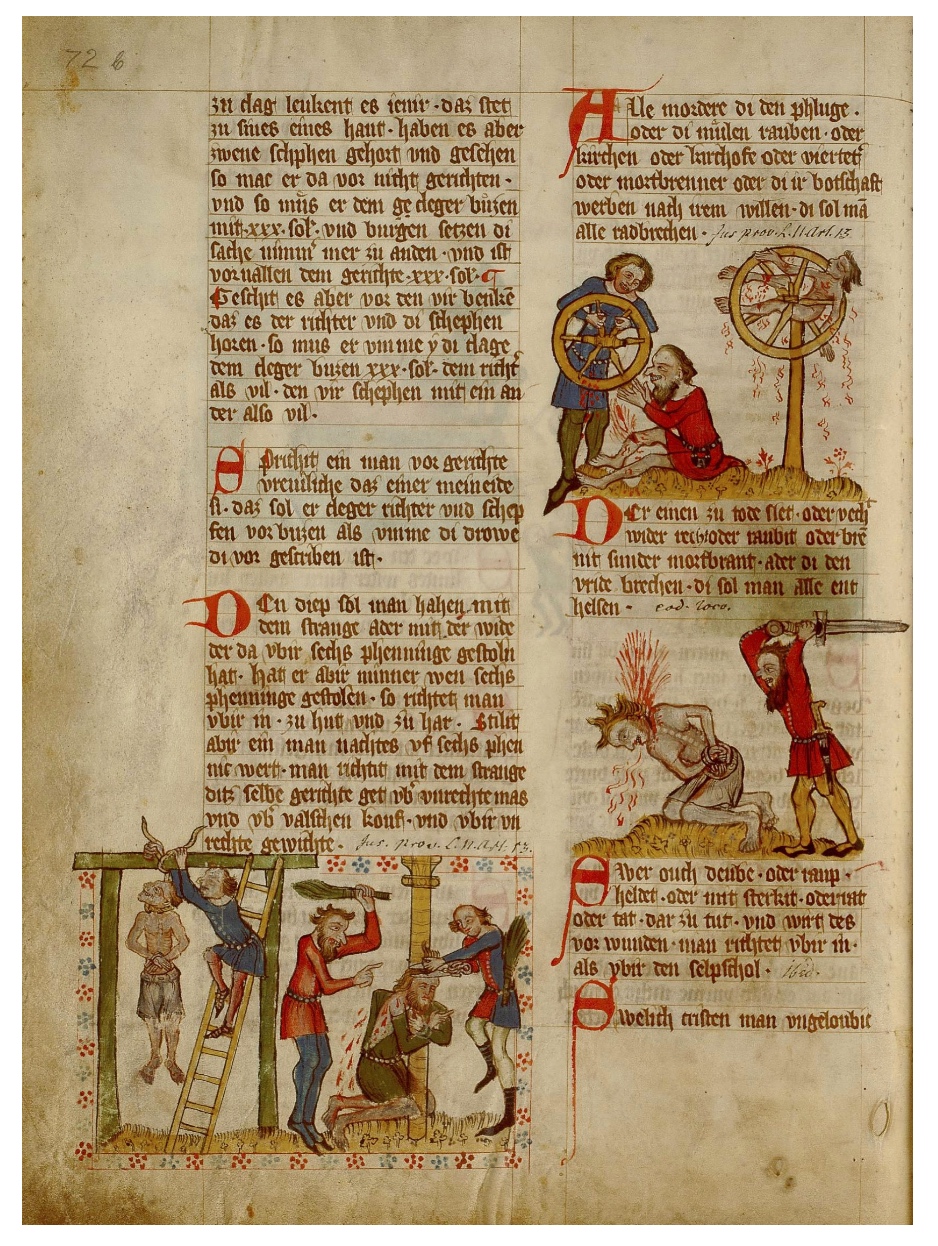 72 b
zu clag leukent es ienir · daz stet
zu sines eines hant · haben es aber
zwene schphen gehort vnd gesehen
so mac er da vor nicht gerichten ·
vnd so mus er dem ge cleger buzen
mit · xxx · sol · vnd burgen setzen di
sache nimm mer zu anden · vnd ist
vorvallen dem gerichte · xxx · sol ·
Geschit es aber vor den vir benkē
daz es der richter vnd di schephen
horen · so mus er vmme ÿ di clage
dem cleger buzen xxx · sol · dem richt
als vil · den vir schephen mit ein an
der also vil ·
Sprichit ein man vor gerichte
vreuiliche daz einer meineide
si · daz sol er cleger richter vnd schep
fen vor buzen als vmme di drowe
di vor gescriben ist ·
Den diep sol man hahen mit
dem strange ader mit der wide
der da vbir sechs phenninge gestoln
hat · hat er abir minner wen sechs
phenninge gestolen · so richtet man
vbir in · zu hut vnd zu har · Stilit
abir ein man nachtes vf sechs phen
nic wert · man richtit mit dem strange
ditz selbe gerichte get vb vnrechte mas
vnd vb valschen kouf · vnd vbir vn
rechte gewichte · Jus. prov. L. II. Art. 13.
Alle mordere di den phluge ·
oder di mulen rauben · oder
kirchen oder kirchofe oder viertet
oder mortbrenner oder di ir botschaft
werben nach irem willen · di sol mā
alle radbrechen · Jus prov. L. II. Art. 13.
Der einen zu tode slet · oder vecht
wider recht oder raubit oder brē
nit sunder mortbrant · ader di den
vride brechen · di sol man alle ent
helsen · eod. loco.
Swer ouch deube · oder raup ·
heldet · oder mit sterkit · oder rat
oder tat · dar zu tut · vnd wirt des
vor wunden · man richtet vbir in ·
als vbir den selpschol · Ibid.
Swelich cristen man vngeloubic